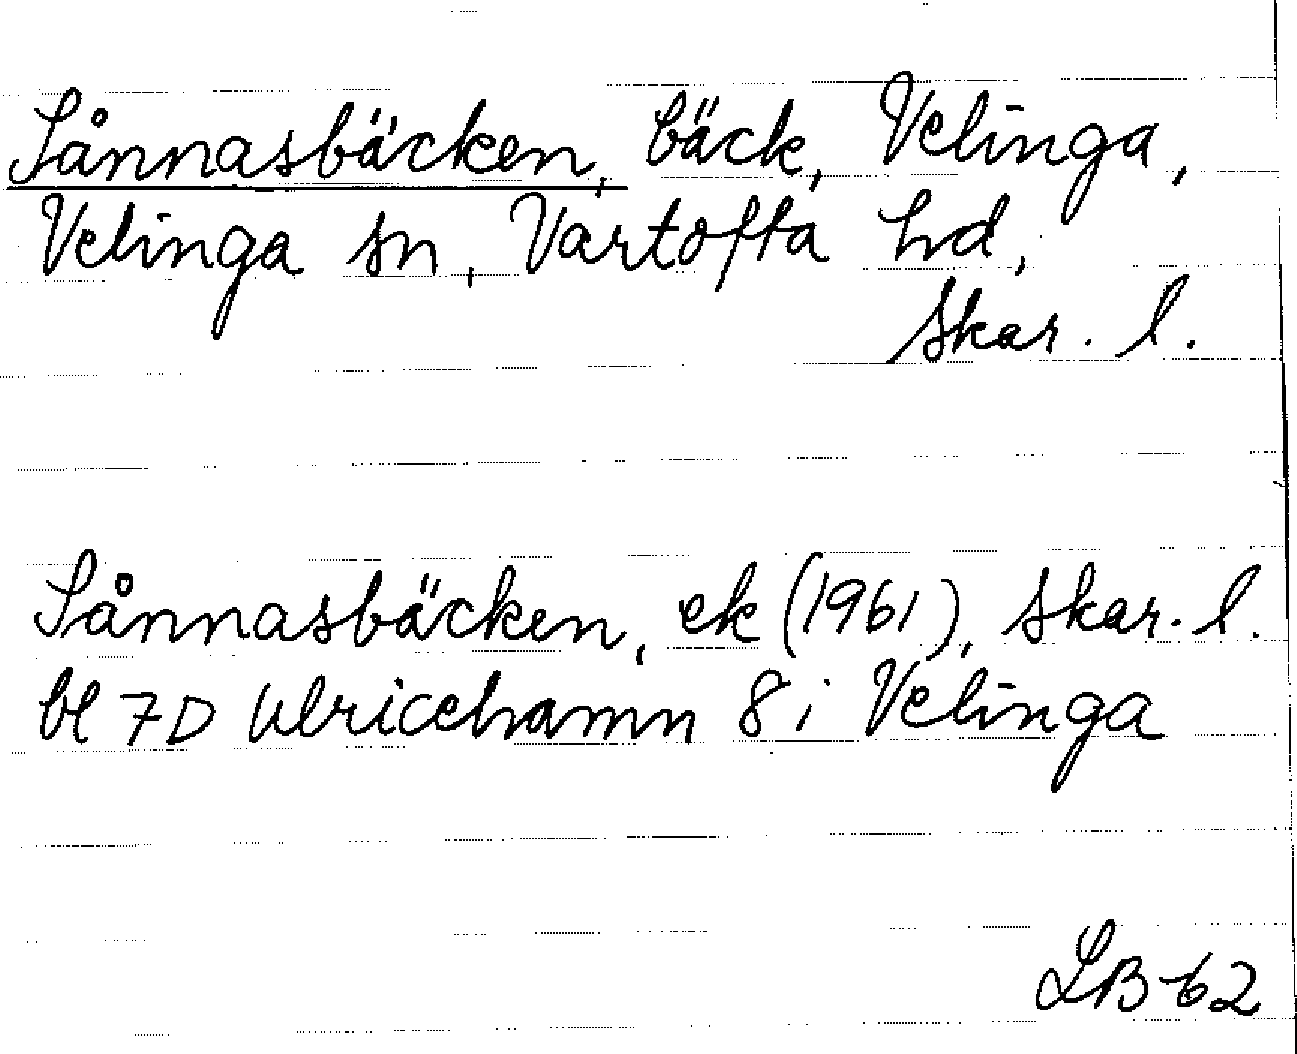 Sånnasbäcken, bäck, Velinga,
Velinga sn, Vartofta hd,
Skar. l.
Sånnasbäcken, ek (1961), Skar. l.
bl 7D Ulricehamn 8 i Velinga
LB 62